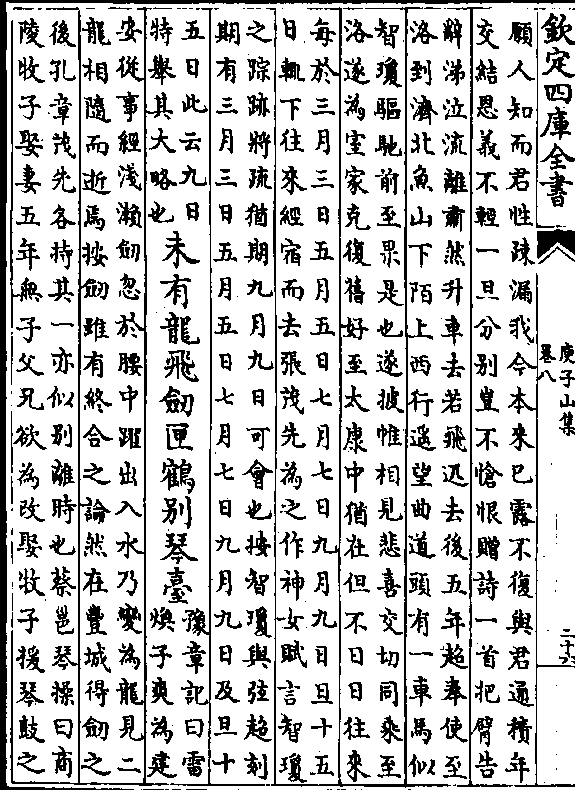 欽定四庫全書
庾子山集
卷八
二十六
願人知而君性疎漏我今本來已露不復與君通積年
交結恩義不輕一旦分别豈不愴恨贈詩一首把臂告
辭涕泣流離肅然升車去若飛迅去後五年超奉使至
洛到濟北魚山下陌上西行遥望曲道頭有一車馬似
智瓊驅馳前至果是也遂披帷相見悲喜交切同乘至
洛遂為室家克復舊好至太康中猶在但不日日往來
每於三月三日五月五日七月七日九月九日旦十五
日輒下往來經宿而去張茂先為之作神女賦言智瓊
之踪跡將疏猶期九月九日可會也按智瓊與弦超刻
期有三月三日五月五日七月七日九月九日及旦十
五日此云九日
特舉其大略也
未有龍飛劒匣鶴别琴臺
豫章記曰雷
煥子爽為建
安從事經淺瀨劒忽於腰中躍出入水乃變為龍見二
龍相隨而逝焉按劒雖有終合之論然在豐城得劒之
後孔章茂先各持其一亦似别離時也蔡邕琴操曰商
陵牧子娶妻五年無子父兄欲為改娶牧子援琴鼓之